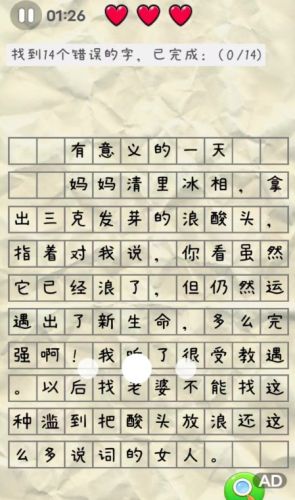 01:26
找到14个错误的字，已完成：（0/14）
有意义的一天
妈妈清里冰相，拿
出三克发芽的浪酸头，
指着对我说，你看虽然
它已经浪了，但仍然运
遇出了新生命，多么完
强啊！我听了很受教遇
。以后找老婆不能找这
种滥到把酸头放浪还这
么多说词的女人。
AD